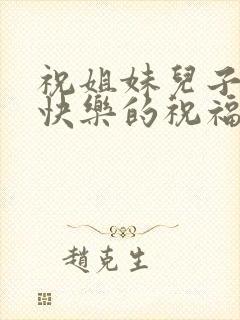 祝姐妹兒子
快樂的祝福
趙克生